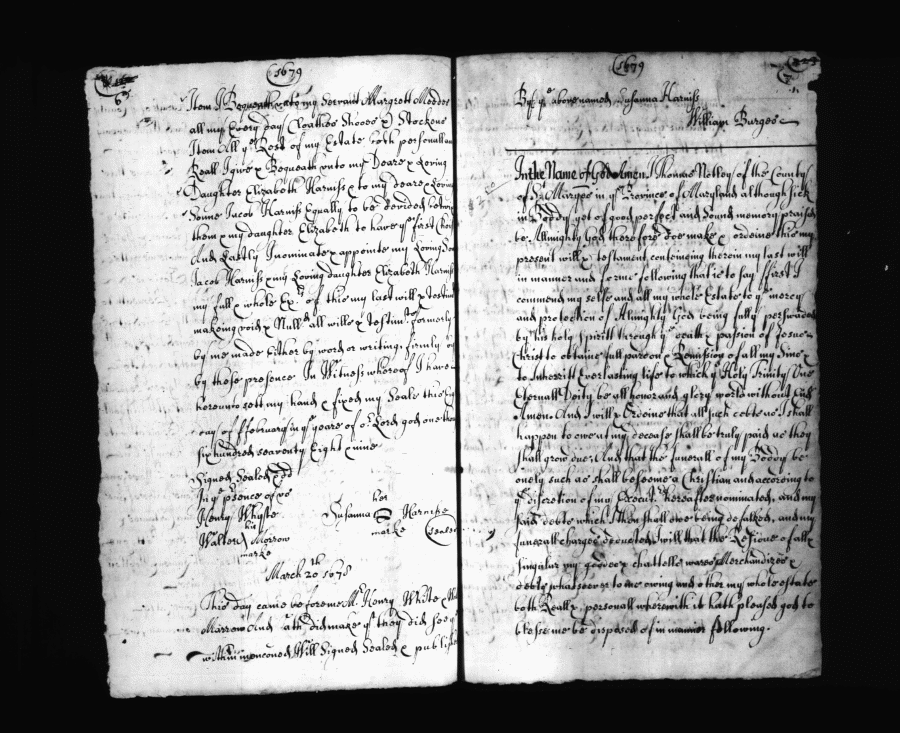 1679
Item I Bequeath unto my Servant Margrett Meddes
all my Every days Cloathes Shooes & Stockens
Item All ye Rest of my Estate both personall
Reall I give & Bequeath unto my Deare & Loving
Daughter Elizabeth Harniss & to my deare & Loving
Sonne Jacob Harniss Equally to be devided betw
them & my daughter Elizabeth to have ye first Choi
And Lastly I nominate & appointe my Loving So
Jacob Harniss & my Loving daughter Elizabeth Harniss
my full & whole Exrs of this my last will & testam
makeing void & Null all wills & testimts formerly
by me made Either by word or writing, firmly
by these presence In Witness whereof I have
hereunto sett my hand & fixed my Seale this
day of ffebruary in ye yeare of or Lord god one thou
six hundred seaventy Eight & nine
Signed Sealed
In ye presence of us
Henry Whyte
his
Walter Morrow
marke
her
Susanna Harniss
marke
Seale
March 20th 1678
This day came before me Mr Henry White &
Marrow And oath did make yt they did see ye
within menconed Will Signed Sealed & publish
1679
By ye above named Susanna Harniss
William Burges
In the Name of God Amen I Thomas Notley of the County
of St Maryes in ye Province of Maryland although sick
in Boddy yet of good perfect and sound memory praised
be Almighty God therefore doe make & ordeine this my
present will & testament conteining therein my last will
in manner and forme following that is to say ffirst I
commend my selfe and all my whole Estate to ye mercy
and protection of Almighty God being fully perswaded
by his holy spiritt through ye death & passion of Jesus
Christ to obtaine full pardon & Remission of all my Sins &
to Inherritt Everlasting life to which ye Holy Trinity One
Eternall Deity be all honor and glory world without End
Amen. And I will & Ordeine that all such debts as I shall
happen to owe at my decease shall be truly paid as they
shall grow due, And that the funerall of my Boddy be
onely such as shall beseeme a Christian and according to
ye discretion of my Executrs hereafter nominated, and my
said debts which I then shall owe being defalked, and my
funerall charges deducted I will that the Residue of all &
singular my goods & chattells wares Merchandizes &
debts whatsoever to me owing and other my whole estate
both Reall & personall wherewith it hath pleased god to
blesse me be disposed of in manner following.